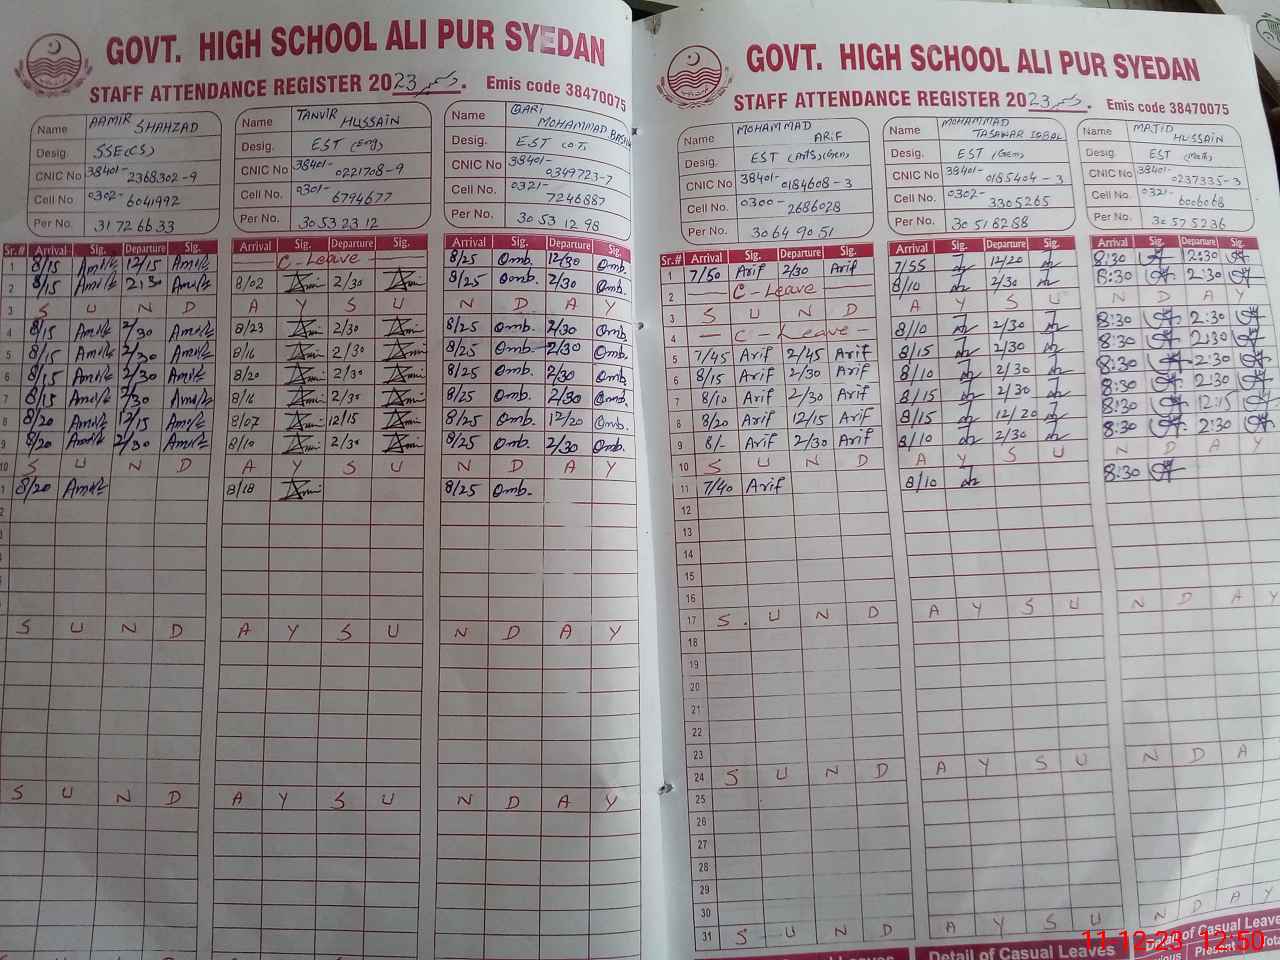 GOVT. HIGH SCHOOL ALI PUR SYEDAN
STAFF ATTENDANCE REGISTER 2023 دسمبر . Emis code 38470075
Name AAMIR SHAHZAD
Desig. SSE(CS)
CNIC No 38401-2368302-9
Cell No. 0302-6041992
Per No. 31726633
Name TANVIR HUSSAIN
Desig. EST (Eng)
CNIC No 38401-0221708-9
Cell No. 0301-6794677
Per No. 30532312
Name QARI MOHAMMAD BASHIR
Desig. EST
CNIC No 38401-0349723-7
Cell No. 0321-7246887
Per No. 30531298
Sr.# Arrival Sig. Departure Sig. Arrival Sig. Departure Sig. Arrival Sig. Departure Sig.
1 8/15 12/15 C-Leave 8/25 Omb. 12/30 Omb.
2 8/15 2:30 8/02 2/30 8/25 Omb. 2/30 Omb.
3 S U N D A Y S U N D A Y
4 8/15 2/30 8/23 2/30 8/25 Omb. 2/30 Omb.
5 8/15 2/30 8/16 2/30 8/25 Omb. 2/30 Omb.
6 8/15 2/30 8/20 2/30 8/25 Omb. 2/30 Omb.
7 8/15 2/30 8/16 2/30 8/25 Omb. 2/30 Omb.
8 8/20 12/15 8/07 12/15 8/25 Omb. 12/20 Omb.
9 8/20 2/30 8/10 2/30 8/25 Omb. 2/30 Omb.
10 S U N D A Y S U N D A Y
8/20 8/18 8/25 Omb.
S U N D A Y S U N D A Y
S U N D A Y S U N D A Y
GOVT. HIGH SCHOOL ALI PUR SYEDAN
STAFF ATTENDANCE REGISTER 2023 دسمبر . Emis code 38470075
Name MOHAMMAD ARIF
Desig. EST (Arts)(Gen)
CNIC No 38401-0184608-3
Cell No. 0300-2686028
Per No. 30649051
Name MOHAMMAD TASAWAR IQBAL
Desig. EST (Gen)
CNIC No 38401-0185404-3
Cell No. 0302-3305265
Per No. 30518288
Name MAJID HUSSAIN
Desig. EST (Math)
CNIC No 38401-0237335-3
Cell No. 0321-6006068
Per No. 30575236
Sr.# Arrival Sig. Departure Sig. Arrival Sig. Departure Sig. Arrival Sig. Departure Sig.
1 7/50 Arif 2/30 Arif 7/55 12/20 8:30 12:30
2 C-Leave 8/10 2/30 8:30 2:30
3 S U N D A Y S U N D A Y
4 C-Leave 8/10 2/30 8:30 2:30
5 7/45 Arif 2/45 Arif 8/15 2/30 8:30 2:30
6 8/15 Arif 2/30 Arif 8/10 2/30 8:30 2:30
7 8/10 Arif 2/30 Arif 8/15 2/30 8:30 2:30
8 8/20 Arif 12/15 Arif 8/15 12/20 8:30 12:15
9 8/- Arif 2/30 Arif 8/10 2/30 8:30 2:30
10 S U N D A Y S U N D A Y
11 7/40 Arif 8/10 8:30
12
13
14
15
16
17 S U N D A Y S U N D A Y
18
19
20
21
22
23
24 S U N D A Y S U N D A Y
25
26
27
28
29
30
31 S U N D A Y S U N D A Y
Detail of Casual Leaves Detail of Casual Leave
11-12-23 12:50